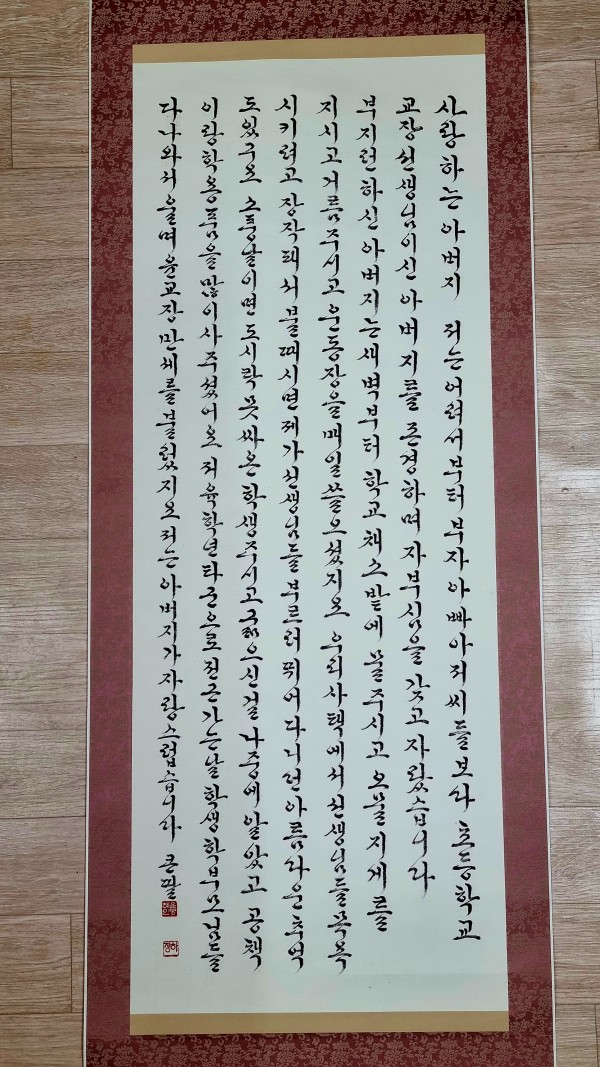 사랑하는 아버지 저는 어려서부터 부자 아빠 아저씨들보다 초등학교
교장선생님이신 아버지를 존경하며 자부심을 갖고 자랐습니다
부지런하신 아버지는 새벽부터 학교 채소밭에 물주시고 오물지게를
지시고 거름주시고 운동장을 매일 쓸으셨지요 우리사택에서 선생님들 목욕
시키려고 장작패서 불때시면 제가 선생님들 부르러 뛰어다니던 아름다운 추억
도 있구요 소풍날이면 도시락 못싸온 학생주시고 굶으신걸 나중에 알았고 공책
이랑 학용품을 많이 사주셨어요 저 육학년 타군으로 전근가는날 학생 학부모님들
다나와서 울며 윤교장 만세를 불렀지요 저는 아버지가 자랑스럽습니다 큰딸